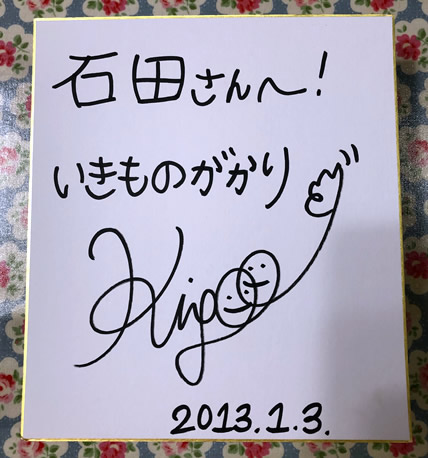 石田さんへ!
いきものがかり
2013.1.3.